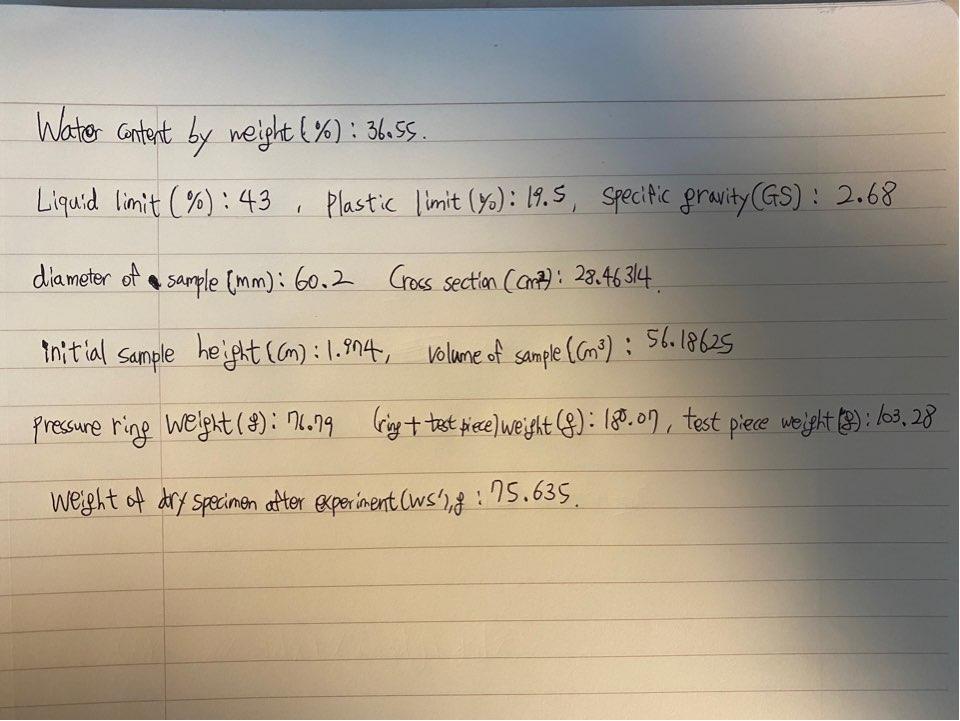 Water content by weight (%) : 36.55.
Liquid limit (%) : 43 , Plastic limit (%) : 19.5, Specific gravity (GS) : 2.68
diameter of sample (mm) : 60.2 Cross section (cm²) : 28.46314.
initial sample height (cm) : 1.974, volume of sample (cm³) : 56.18625
pressure ring weight (g) : 76.79 (ring + test piece) weight (g) : 180.07, test piece weight (g) : 103.28
weight of dry specimen after experiment (ws'), g : 75.635.